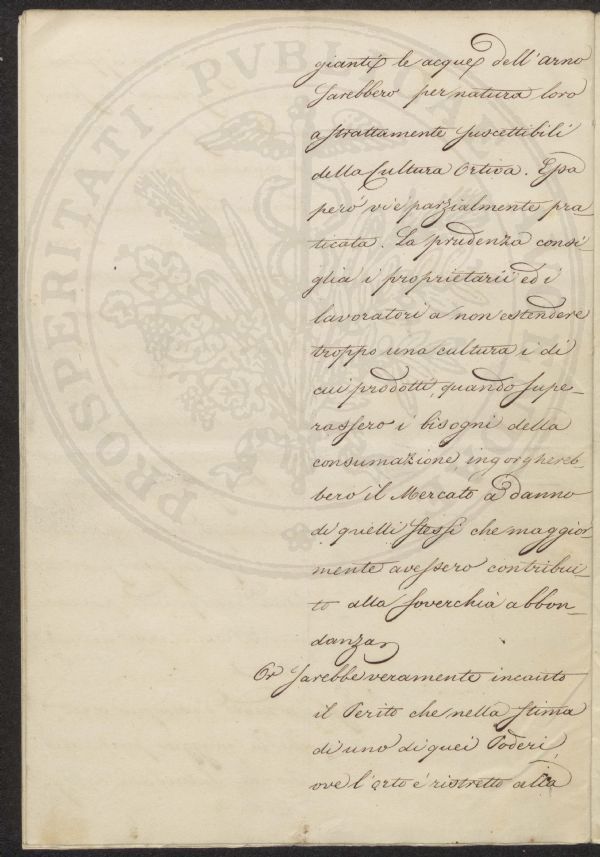 gianti le acque dell'arno
Sarebbero per natura loro
astrattamente suscettibili
della Cultura Ortiva. Essa
però vi è parzialmente pra-
ticata. La prudenza consi-
glia i proprietarii ed i
lavoratori a non estendere
troppo una cultura i di
cui prodotti, quando supe-
rassero i bisogni della
consumazione, ingorghereb-
bero il Mercato a danno
di quelli stessi che maggior-
mente avessero contribui-
to alla soverchia abbon-
danza
Or Sarebbe veramente incauto
il Perito che nella stima
di uno di quei Poderi,
ove l'orto è ristretto alla
PROSPERITATI PVBLICAE